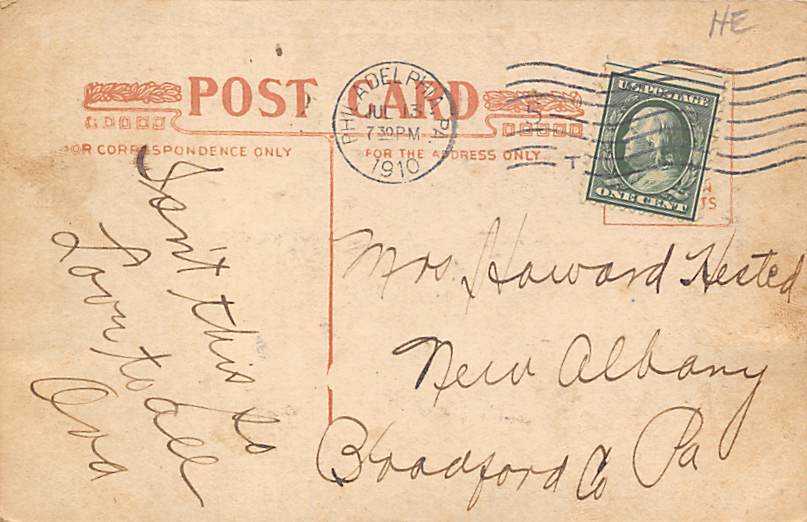 HE
POST CARD
PHILADELPHIA, PA.
JUL 13
7 30 PM
1910
U.S. POSTAGE
ONE CENT
FOR CORRESPONDENCE ONLY
FOR THE ADDRESS ONLY
Isn't this so
Love to all
Mrs. Howard Hested
New Albany
Bradford Co Pa